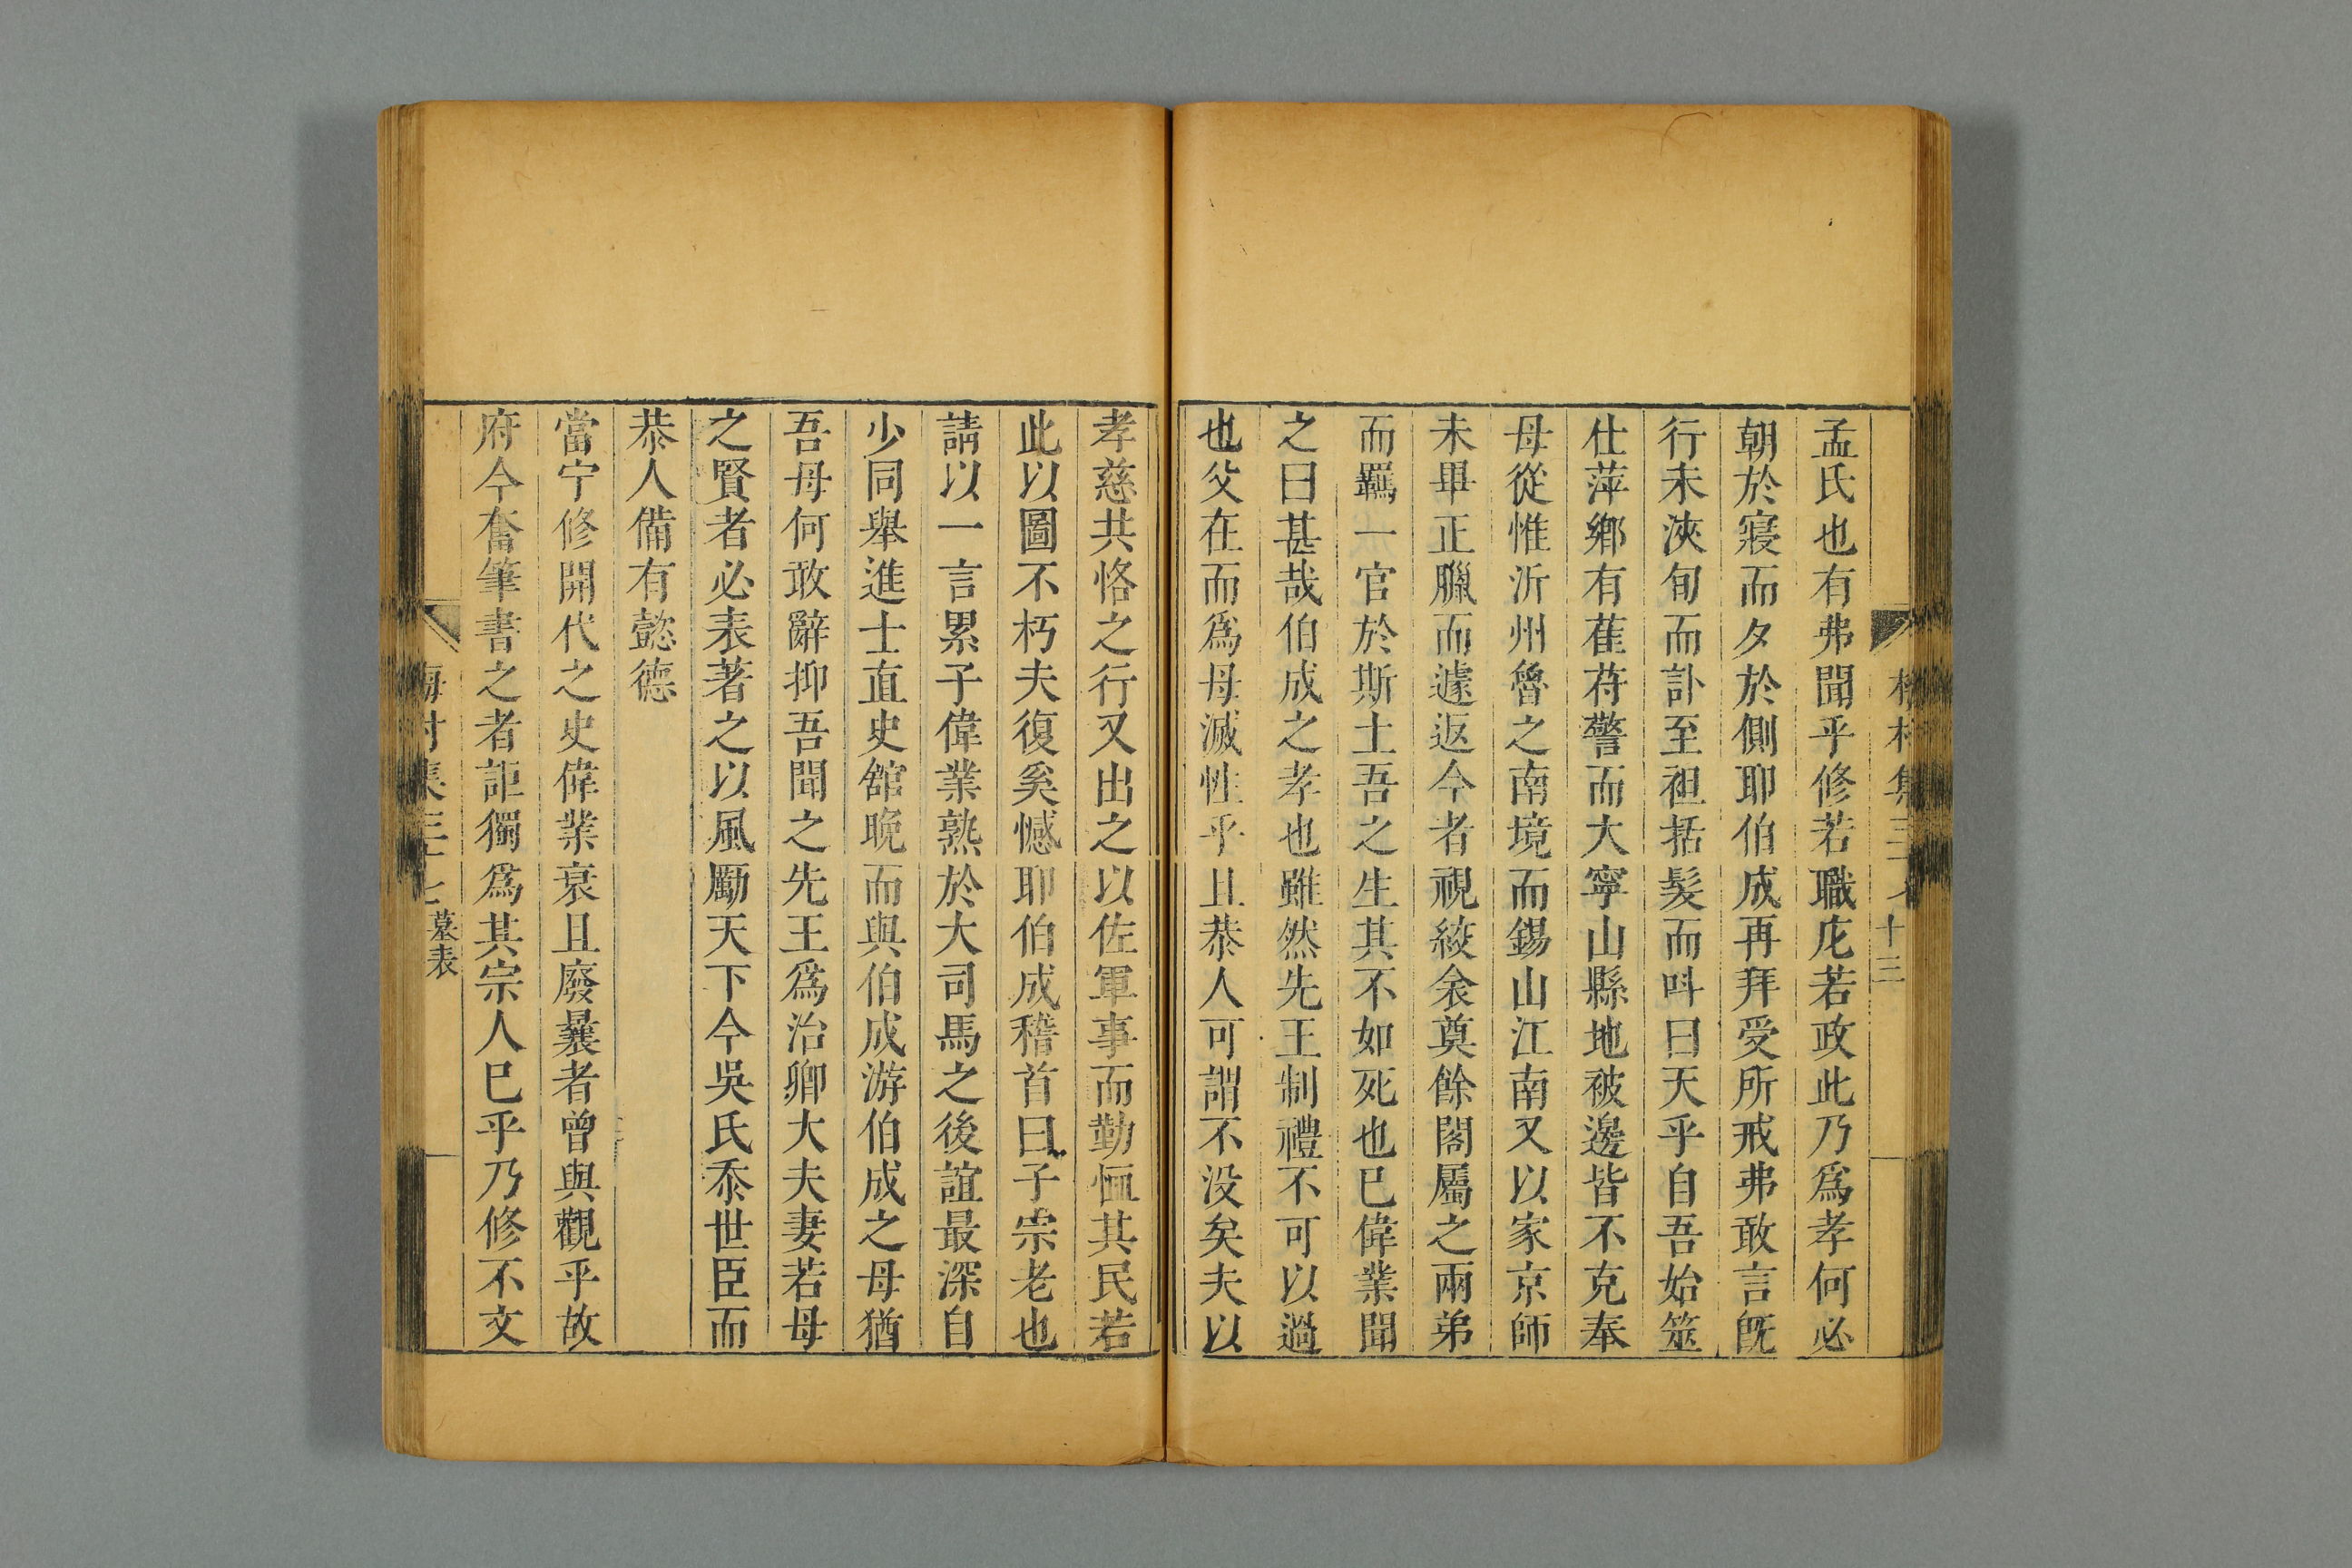 孟氏也有弗聞乎修若職庀若政此乃爲孝何必
朝於寢而夕於側耶伯成再拜受所戒弗敢言旣
行未浹旬而訃至袒括髮而呌曰天乎自吾始筮
仕萍鄉有萑苻警而大寧山縣地被邊皆不克奉
母從惟沂州魯之南境而錫山江南又以家京師
未畢正臘而遽返今者視絞衾奠餘閣屬之兩弟
而羈一官於斯土吾之生其不如死也巳偉業聞
之曰甚哉伯成之孝也雖然先王制禮不可以過
也父在而爲母滅性乎且恭人可謂不没矣夫以
孝慈共恪之行又出之以佐軍事而勤恤其民若
此以圖不朽夫復奚憾耶伯成稽首曰子宗老也
請以一言累子偉業熟於大司馬之後誼最深自
少同舉進士直史舘晚而與伯成游伯成之母猶
吾母何敢辭抑吾聞之先王爲治卿大夫妻若母
之賢者必表著之以風勵天下今吳氏忝世臣而
恭人備有懿德
當宁修開代之史偉業衰且廢曩者曾與觀乎故
府今奮筆書之者詎獨爲其宗人巳乎乃修不文
梅村集三十七 墓表
十三